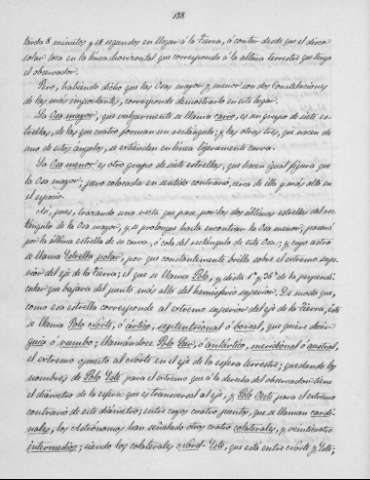 188
tarda 8 minutos y 18 segundos en llegar á la Tierra, á contar desde que el disco
solar toca en la línea horizontal que corresponde á la altura terrestre que tenga
el observador.
Pero, habiendo dicho que las Osas mayor y menor son dos Constelaciones
de las más importantes, corresponde demostrarlo en este lugar.
La Osa mayor, que vulgarmente se llama carro, es un grupo de siete es-
trellas, de las que cuatro forman un rectángulo; y las otras tres, que nacen de
uno de estos ángulos, se extienden en línea ligeramente curva.
La Osa menor es otro grupo de siete estrellas, que hacen igual figura que
la Osa mayor; pero colocada en sentido contrario, cerca de ella y más alta en
el espacio.
Así, pues, trazando una recta que pase por las dos últimas estrellas del rec-
tángulo de la Osa mayor, y se prolongue hasta encontrar la Osa menor, pasará
por la última estrella de su carro, ó cola del rectángulo de esta Osa; y cuyo astro
se llama Estrella polar, por que constantemente brilla sobre el extremo supe-
rior del eje de la Tierra; el que se llama Polo, y dista 1° y 26' de la perpendi-
cular que bajara del punto más alto del hemisferio superior. De modo que,
como esa estrella corresponde al extremo superior del eje de la Tierra, éste
se llama Polo Norte, ó ártico, septentrional ó boreal, que quiere decir
guía ó rumbo; llamándose Polo Sur, ó antártico, meridional ó austral,
el extremo opuesto al Norte en el eje de la esfera terrestre; quedando los
nombres de Polo Este para el extremo que á la derecha del observador tiene
el diámetro de la esfera que es transversal al eje, y Polo Oeste para el extremo
contrario de este diámetro; entre cuyos cuatro puntos, que se llaman cardi-
nales, los Astrónomos han señalado otros cuatro colaterales, y veinticuatro
intermedios; siendo los colaterales Nord-Este, que está entre Norte y Este;